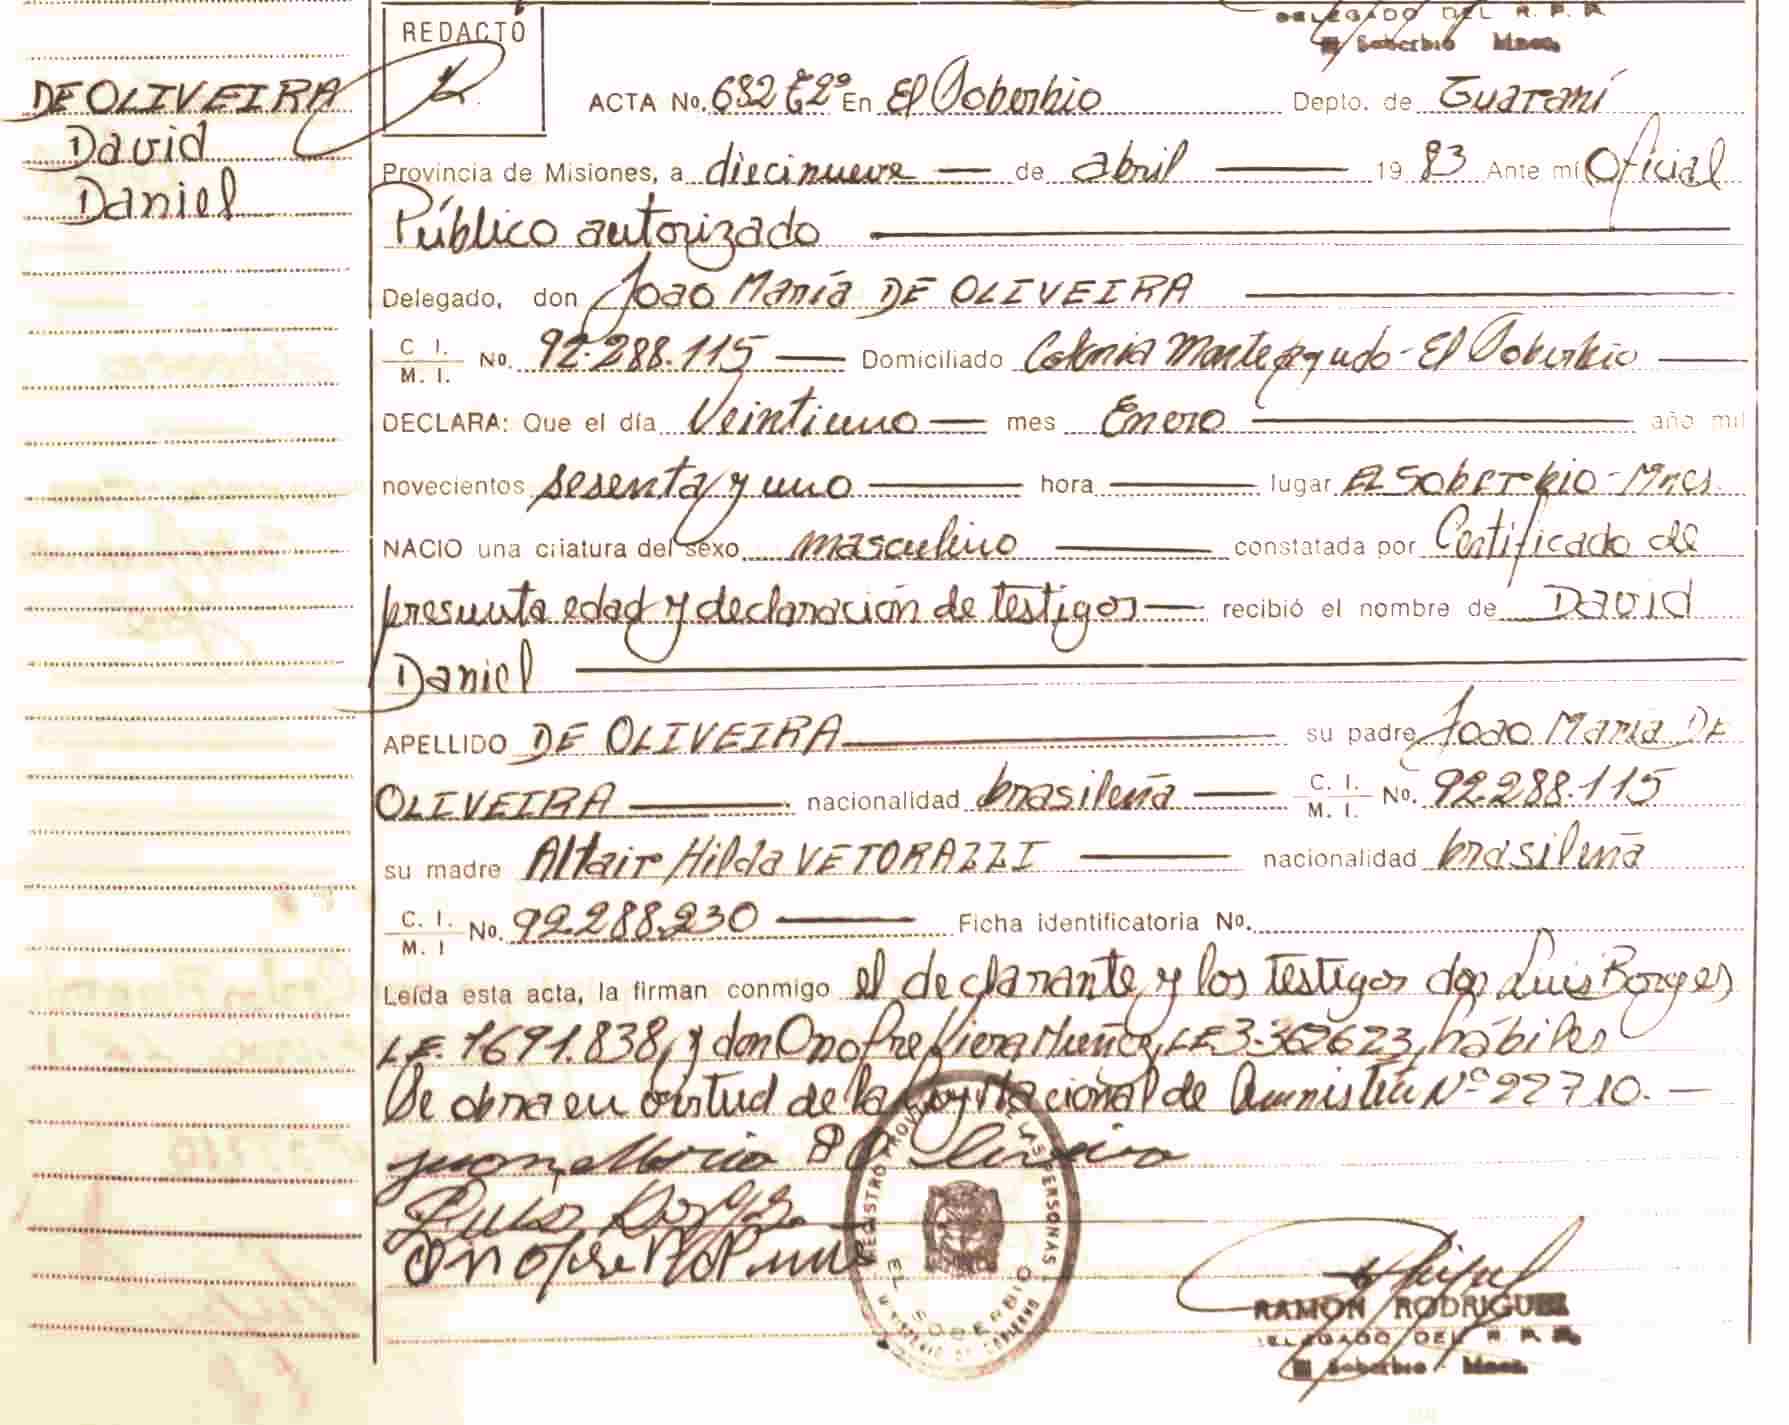 DELEGADO DEL R. P. P.
El Soberbio Mnes.
REDACTO
DE OLIVEIRA
David
Daniel
ACTA No. 632 Tº 2º En El Soberbio Depto. de Guaraní
Provincia de Misiones, a diecinueve — de abril — 19 83 Ante mí Oficial
Público autorizado
Delegado, don Joao María DE OLIVEIRA
C. I. / M. I. No. 92.288.115 — Domiciliado Colonia Monteagudo - El Soberbio —
DECLARA: Que el día Veintiuno — mes Enero — año mil
novecientos sesenta y uno — hora — lugar El Soberbio - Mnes.
NACIO una criatura del sexo masculino — constatada por Certificado de
presunta edad y declaración de testigos — recibió el nombre de David
Daniel
APELLIDO DE OLIVEIRA — su padre Joao María DE
OLIVEIRA — nacionalidad brasileña — C. I. / M. I. No. 92.288.115
su madre Altair Hilda VETORAZZI — nacionalidad brasileña
C. I. / M. I No. 92.288.230 — Ficha identificatoria No.
Leída esta acta, la firman conmigo el declarante y los testigos don Luis Borges
L.E. 1691.838, y don Onofre Viera Muñoz, L.E. 3.362623, hábiles
Se obra en virtud de la Ley Nacional de Amnistía Nº 22710. —
Luis Borges
REGISTRO DE LAS PERSONAS
EL SOBERBIO
RAMON RODRIGUEZ
DELEGADO DEL R. P. P.
El Soberbio - Mnes.